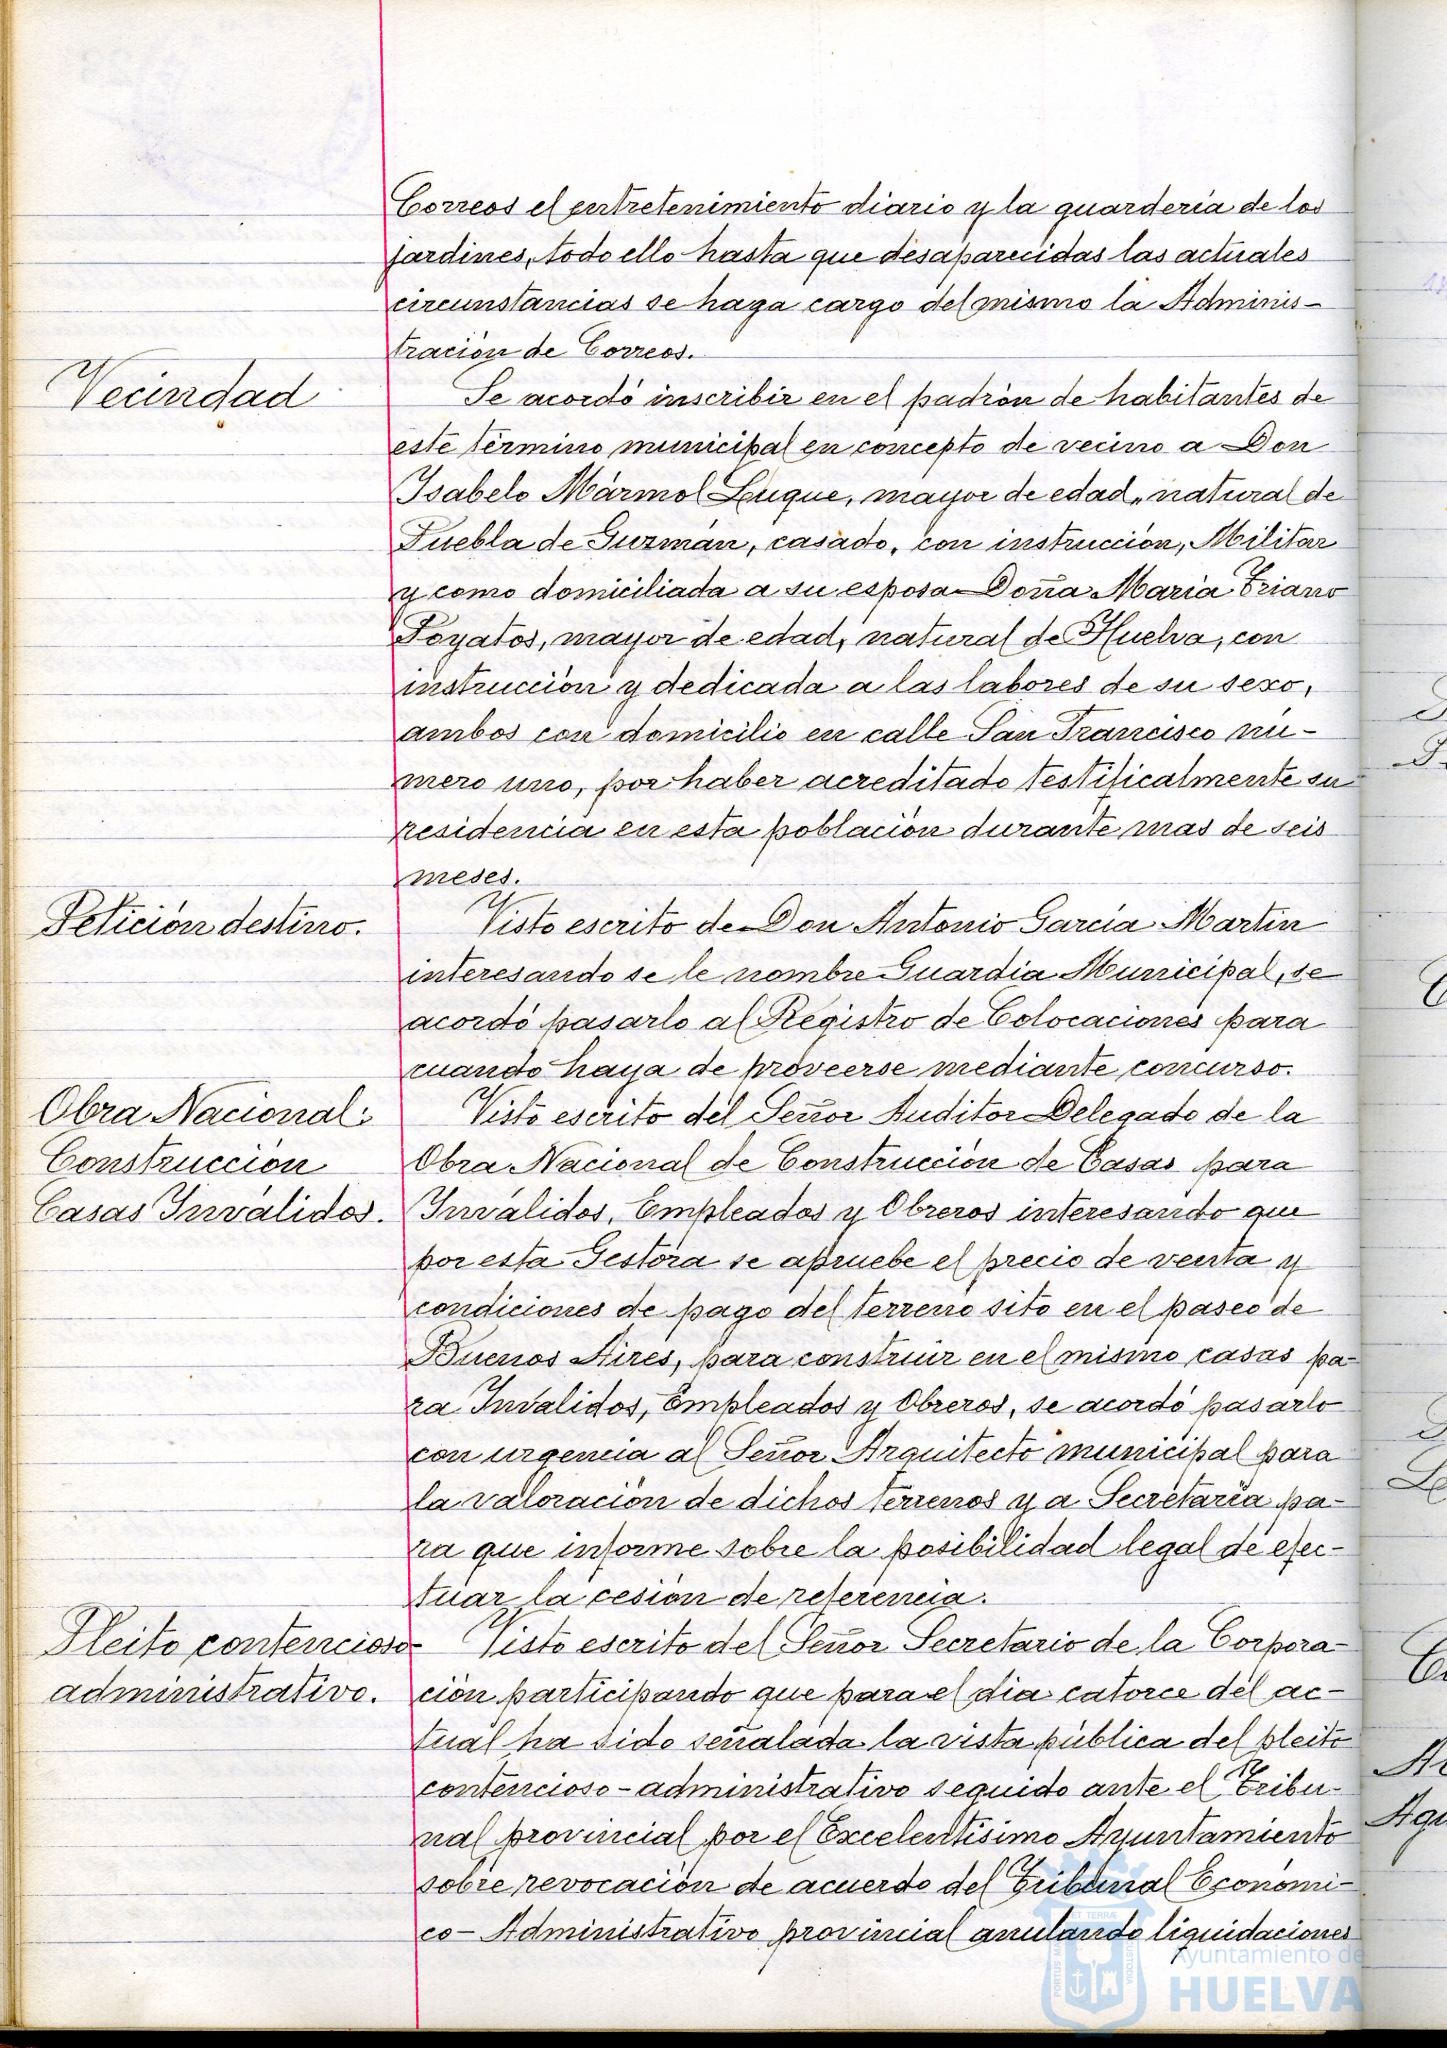 Correos el entretenimiento diario y la guardería de los
jardines, todo ello hasta que desaparecidas las actuales
circunstancias se haga cargo del mismo la Adminis-
tración de Correos.
Vecindad
Se acordó inscribir en el padrón de habitantes de
este término municipal en concepto de vecino a Don
Isabelo Mármol Luque, mayor de edad, natural de
Puebla de Guzmán, casado, con instrucción, Militar
y como domiciliada a su esposa Doña María Triano
Poyatos, mayor de edad, natural de Huelva, con
instrucción y dedicada a las labores de su sexo,
ambos con domicilio en calle San Francisco nú-
mero uno, por haber acreditado testificalmente su
residencia en esta población durante mas de seis
meses.
Petición destino.
Visto escrito de Don Antonio García Martín
interesando se le nombre Guardia Municipal, se
acordó pasarlo al Registro de Colocaciones para
cuando haya de proveerse mediante concurso.
Obra Nacional:
Construcción
Casas Inválidos.
Visto escrito del Señor Auditor Delegado de la
Obra Nacional de Construcción de Casas para
Inválidos, Empleados y Obreros interesando que
por esta Gestora se apruebe el precio de venta y
condiciones de pago del terreno sito en el paseo de
Buenos Aires, para construir en el mismo casas pa-
ra Inválidos, Empleados y Obreros, se acordó pasarlo
con urgencia al Señor Arquitecto municipal para
la valoración de dichos terrenos y a Secretaría pa-
ra que informe sobre la posibilidad legal de efec-
tuar la cesión de referencia.
Pleito contencioso-
administrativo.
Visto escrito del Señor Secretario de la Corpora-
ción participando que para el día catorce del ac-
tual ha sido señalada la vista pública del pleito
contencioso-administrativo seguido ante el Tribu-
nal provincial por el Excelentísimo Ayuntamiento
sobre revocación de acuerdo del Tribunal Económi-
co-Administrativo provincial anulando liquidaciones
Ayuntamiento de
HUELVA